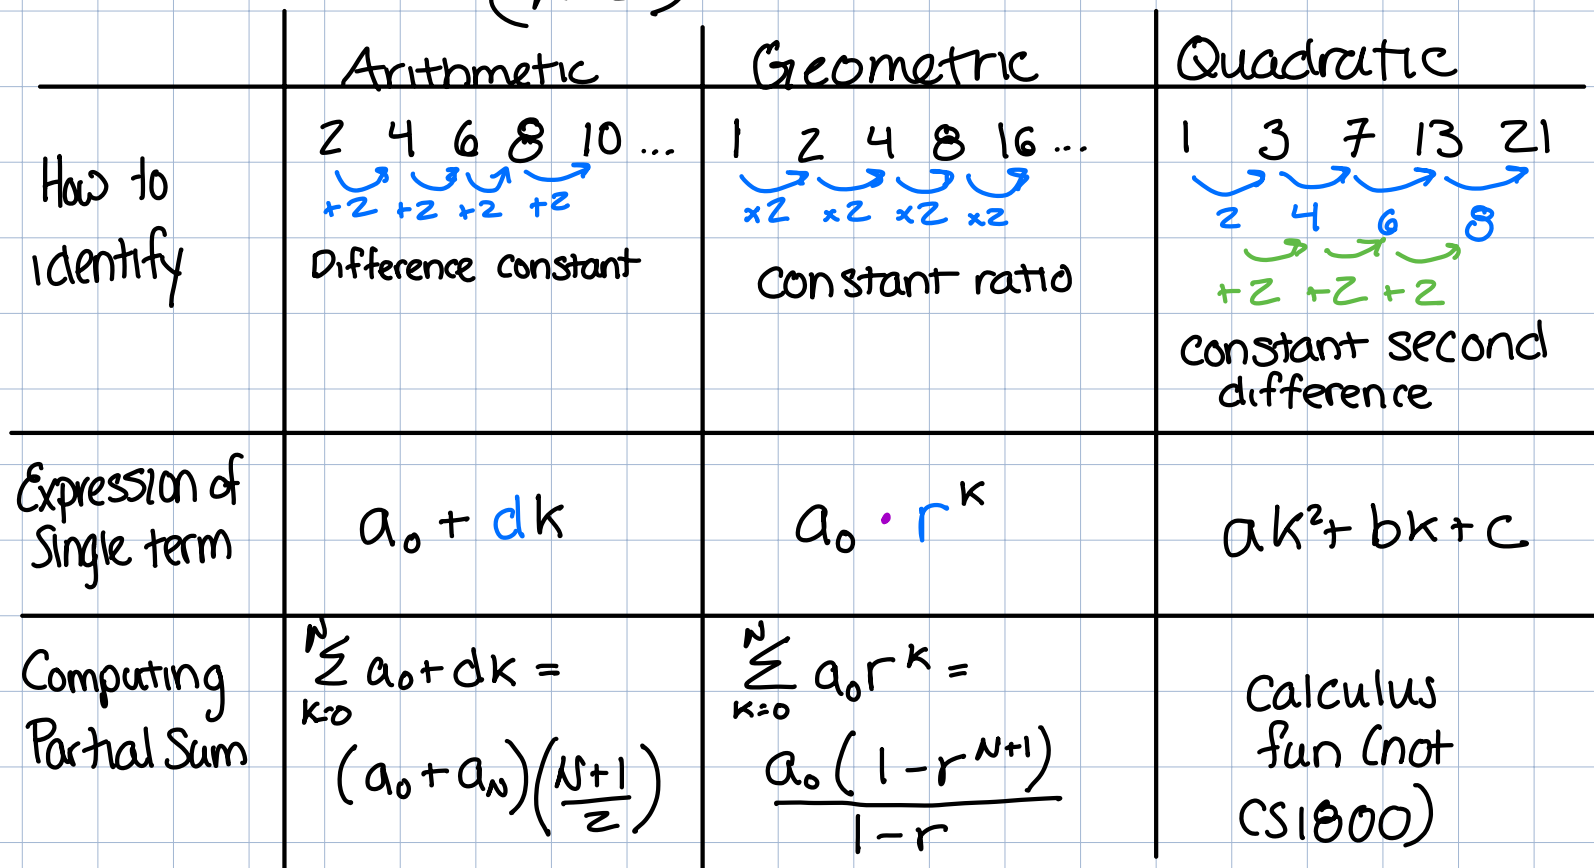 Arithmetic Geometric Quadratic
How to identify
2 4 6 8 10 ...
+2 +2 +2 +2
Difference constant
1 2 4 8 16 ...
×2 ×2 ×2 ×2
constant ratio
1 3 7 13 21
2 4 6 8
+2 +2 +2
constant second
difference
Expression of
Single term
a₀ + dk
a₀ · r^k
ak² + bk + c
Computing
Partial Sum
N
Σ a₀ + dk =
k=0
(a₀ + a_N)((N+1)/2)
N
Σ a₀r^k =
k=0
a₀(1 - r^(N+1))
1 - r
Calculus
fun (not
CS1800)